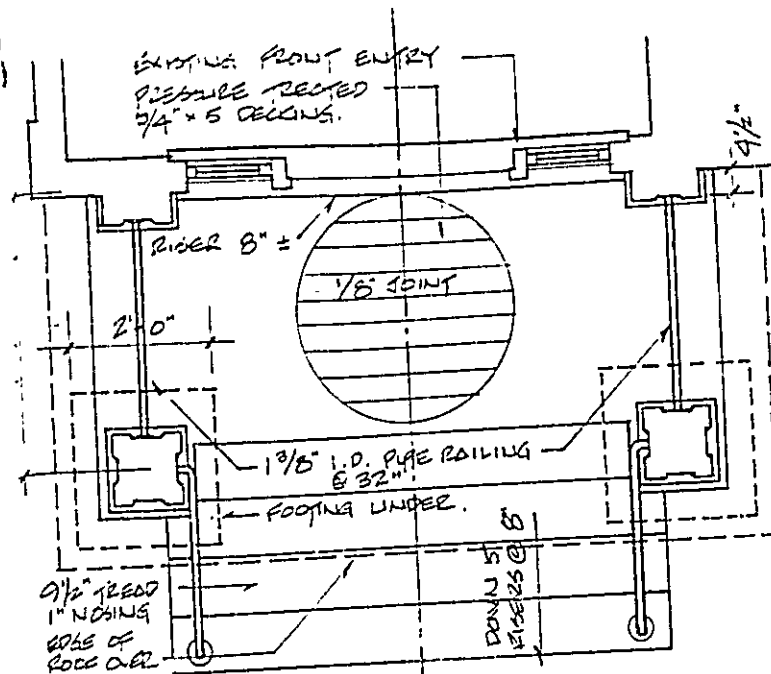 EXISTING FRONT ENTRY
PRESSURE TREATED
3/4" x 5 DECKING.
4 1/2"
RISER 8" ±
1/8" JOINT
2'-0"
1 3/8" I.D. PIPE RAILING
@ 32"
FOOTING UNDER.
9 1/2" TREAD
1" NOSING
EDGE OF
ROOF OVER
DOWN 5
RISERS @ 8"